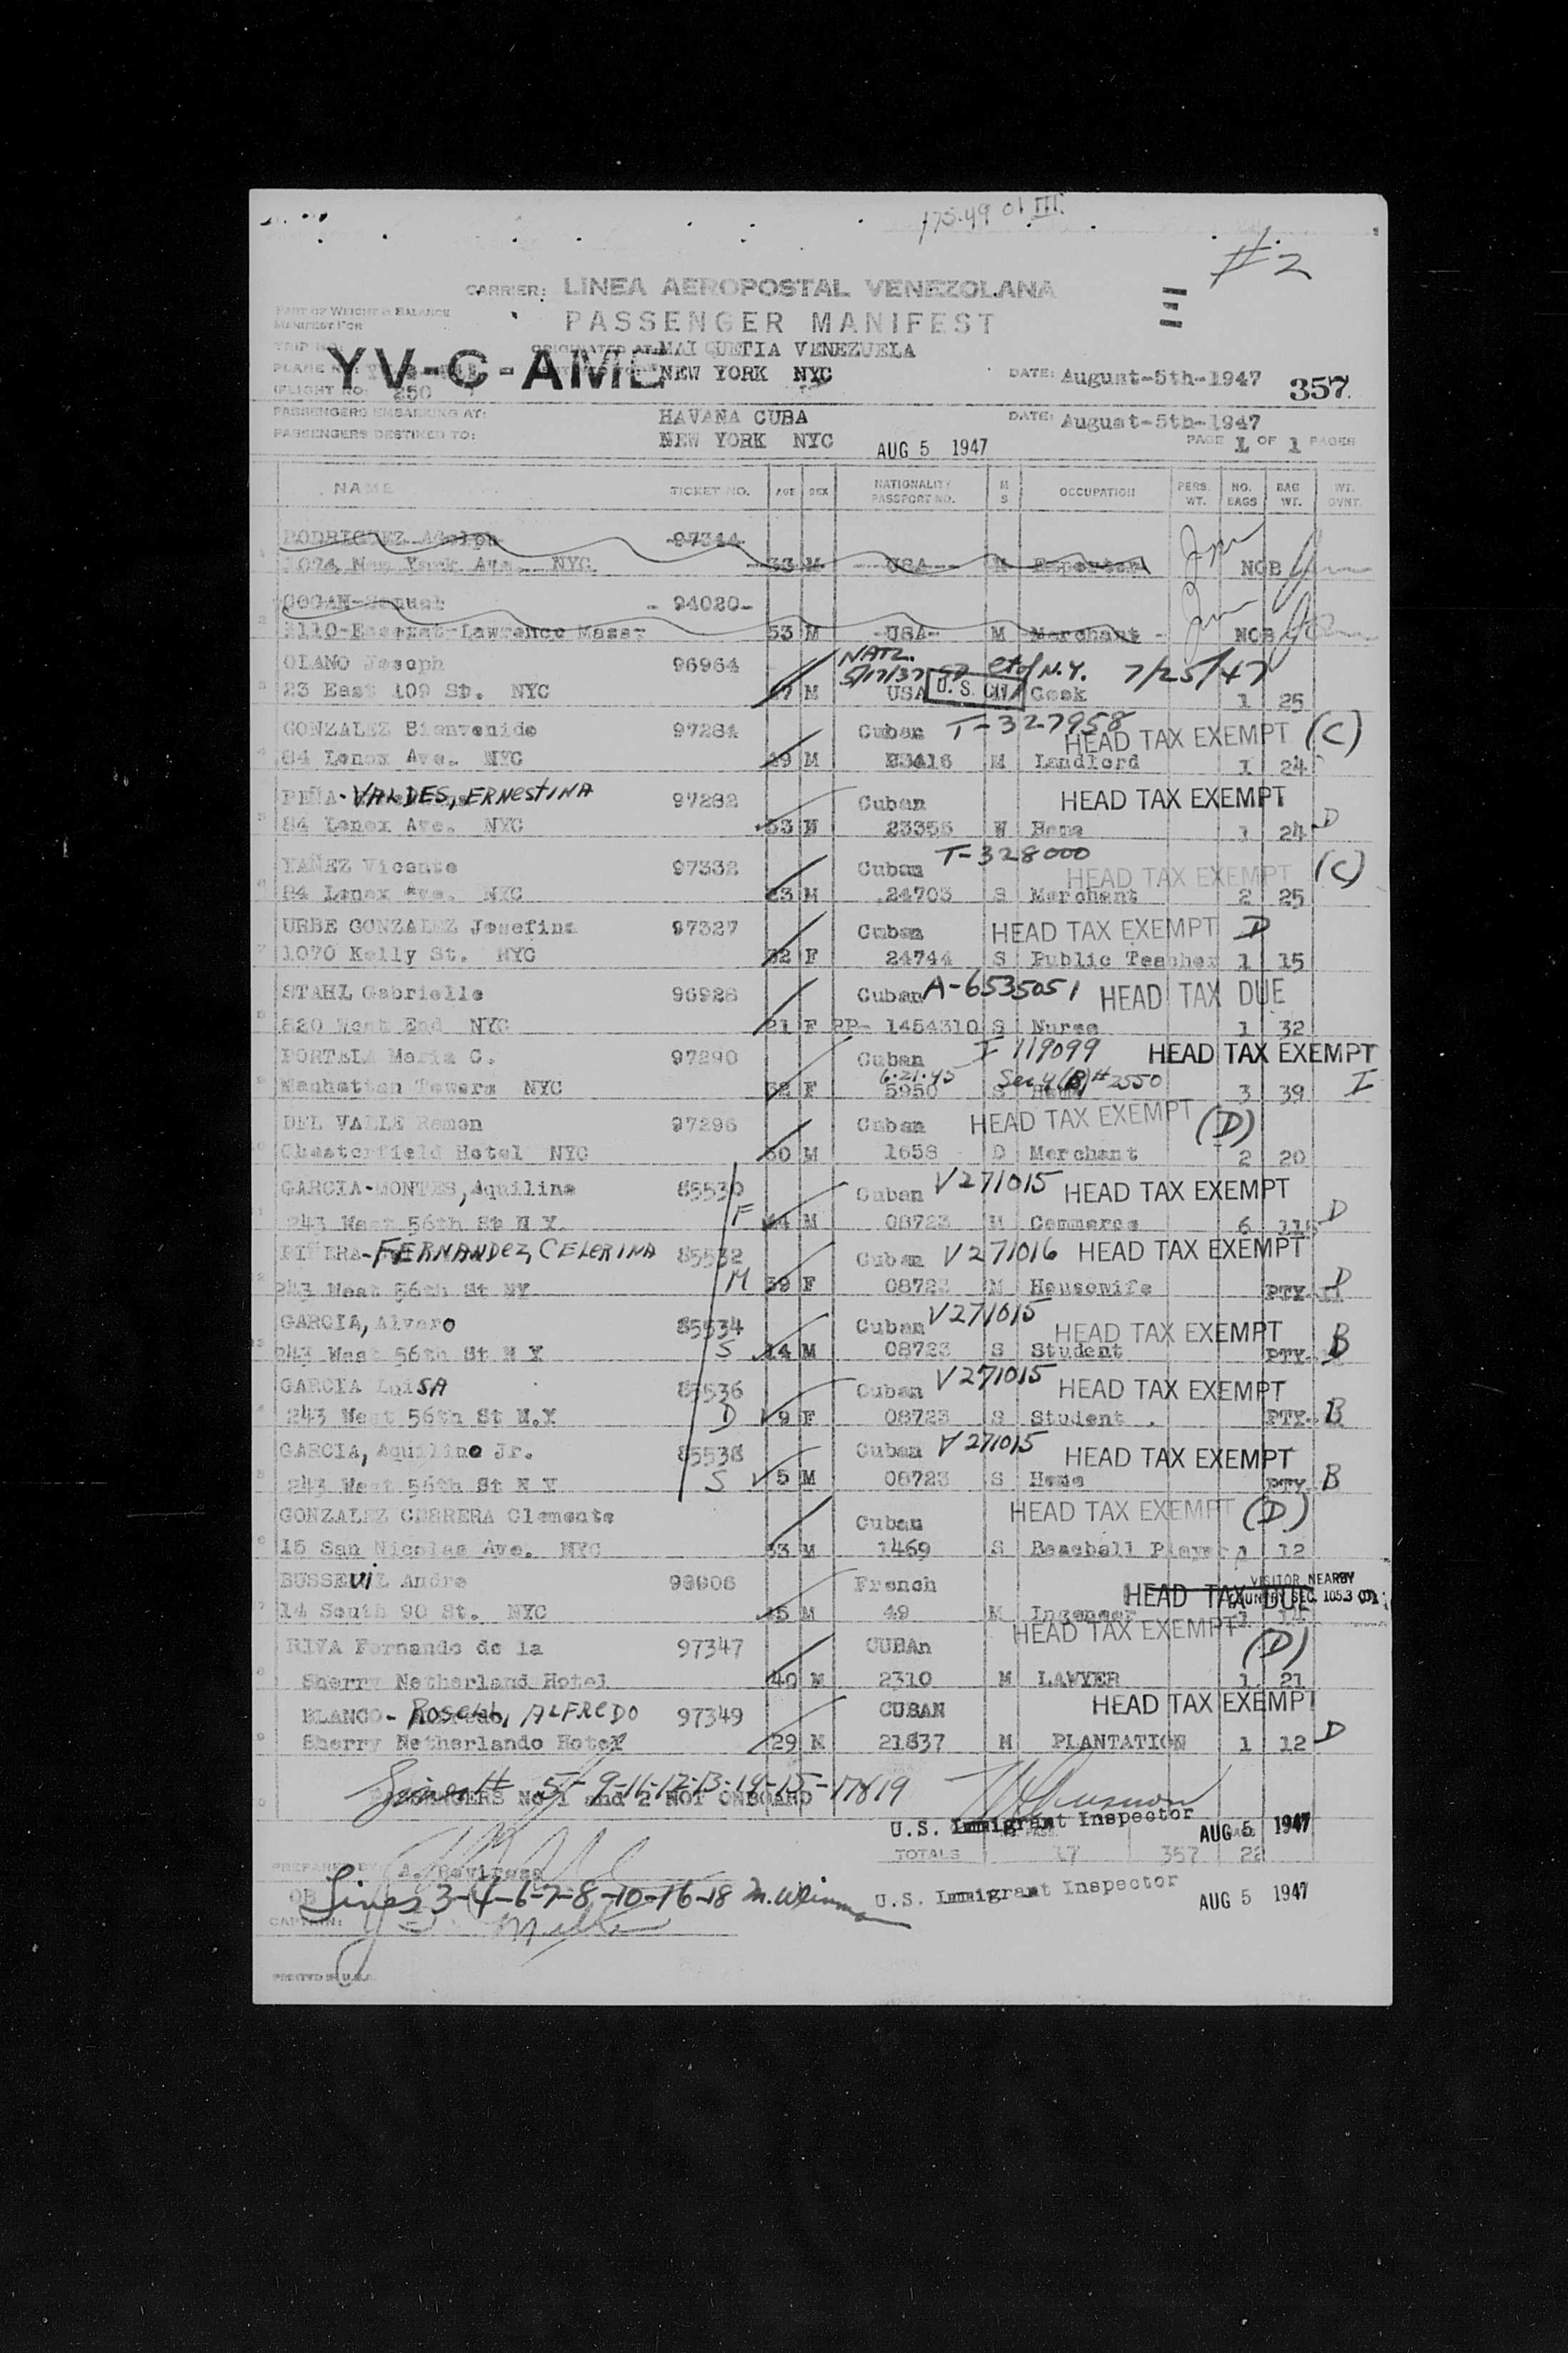 175-49 01 III.
#2
CARRIER: LINEA AEROPOSTAL VENEZOLANA
PART OF WEIGHT & BALANCE
MANIFEST FOR
PASSENGER MANIFEST
MAIQUETIA VENEZUELA
YV-C-AME NEW YORK NYC DATE: August-5th-1947 357
FLIGHT NO: 250
PASSENGERS EMBARKING AT: HAVANA CUBA DATE: August-5th-1947
PASSENGERS DESTINED TO: NEW YORK NYC AUG 5 1947 PAGE 1 OF 1 PAGES
NAME TICKET NO. AGE SEX NATIONALITY PASSPORT NO. M S OCCUPATION PERS. WT. NO. BAGS BAG WT. WT. OVNT.
RODRIGUEZ Adolph 97344
1074 New York Ave. NYC 33 M USA M NOB
COGAN 94020
Lawrence Massr 53 M USA M Merchant NOB
OLANO Joseph 96964 NATZ. 5/17/37 ct of N.Y. 7/25/47
23 East 109 St. NYC 47 M USA 1 25
GONZALEZ Bienvenido 97284 Cuban T-327958 HEAD TAX EXEMPT (C)
84 Lenox Ave. NYC 29 M M Landlord 1 24
PEÑA-VALDES, ERNESTINA 97282 Cuban HEAD TAX EXEMPT
84 Lenox Ave. NYC 53 23355 W Home 1 24 D
YAÑEZ Vicente 97332 Cuban T-328000 HEAD TAX EXEMPT (C)
84 Lenox Ave. NYC 23 M 24703 S Merchant 2 25
URBE GONZALEZ Josefina 97327 Cuban HEAD TAX EXEMPT D
1070 Kelly St. NYC 32 F 24744 S Public Teacher 1 15
STAHL Gabrielle 96928 Cuban A-6535051 HEAD TAX DUE
820 West End NYC 21 F PP- 1454310 S Nurse 1 32
PORTELA Maria C. 97290 Cuban I 119099 HEAD TAX EXEMPT
Manhattan Towers NYC 32 F 6-21-45 5950 S Sec 4(B) #2550 3 39 I
DEL VALLE Ramon 97296 Cuban HEAD TAX EXEMPT (D)
Chesterfield Hotel NYC 30 M 1658 D Merchant 2 20
GARCIA-MONTES, Aquilino 85530 Cuban V271015 HEAD TAX EXEMPT
243 West 56th St N Y. F 44 M 08723 M Commerce 6 115 D
PIÑERA-FERNANDEZ, CELERINA 85532 Cuban V271016 HEAD TAX EXEMPT
243 West 56th St NY M 39 F 08723 M Housewife PTY D
GARCIA, Alvaro 85534 Cuban V271015 HEAD TAX EXEMPT
243 West 56th St N Y S 14 M 08723 S Student PTY B
GARCIA LuiSA 85536 Cuban V271015 HEAD TAX EXEMPT
243 West 56th St N.Y D 9 F 08723 S Student PTY B
GARCIA, Aquilino Jr. 85538 Cuban V271015 HEAD TAX EXEMPT
243 West 56th St N Y S 5 M 08723 S Home PTY B
GONZALEZ CABRERA Clemente Cuban HEAD TAX EXEMPT (D)
15 San Nicolas Ave. NYC 33 M 1469 S Baseball Player 12
Andre 98906 French HEAD TAX DUE VISITOR NEARBY
14 South 90 St. NYC 45 M 49 M COUNTRY SEC. 105.3
RIVA Fernando de la 97347 CUBAn HEAD TAX EXEMPT (D)
Sherry Netherland Hotel 40 M 2310 M LAWYER 1 21
BLANCO-Rosell, ALFREDO 97349 CUBAN HEAD TAX EXEMPT
Sherry Netherlando Hotel 29 M 21837 M PLANTATION 1 12 D
5-9-11-12-13-14-15-17&19
PASSENGERS No 1 and 2 NOT ONBOARD
U.S. Immigrant Inspector AUG 5 1947
TOTALS 17 357 22
PREPARED BY: A.
Lines 3-4-6-7-8-10-16-18 U.S. Immigrant Inspector AUG 5 1947
CAPTAIN:
PRINTED IN U.S.A.